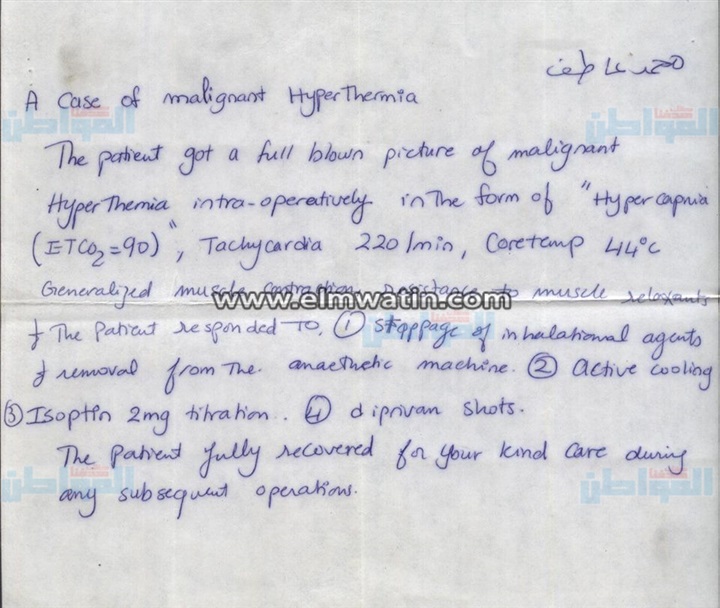 محمد عاطف
A case of malignant HyperThermia
The patient got a full blown picture of malignant
HyperThemia intra-operatively in The form of "Hypercapnia
(ETCO₂=90)", Tachycardia 220/min, Coretemp 44°c
Generalized muscle contraction, resistance to muscle relaxants
www.elmwatin.com
The patient responded To, ① stoppage of inhalational agents
& removal from The. anaethetic machine. ② Active cooling
③ Isoptin 2mg titration.. ④ diprivan shots.
The Patient fully recovered for your kind care during
any subsequent operations.
المواطن
المواطن
المواطن
المواطن